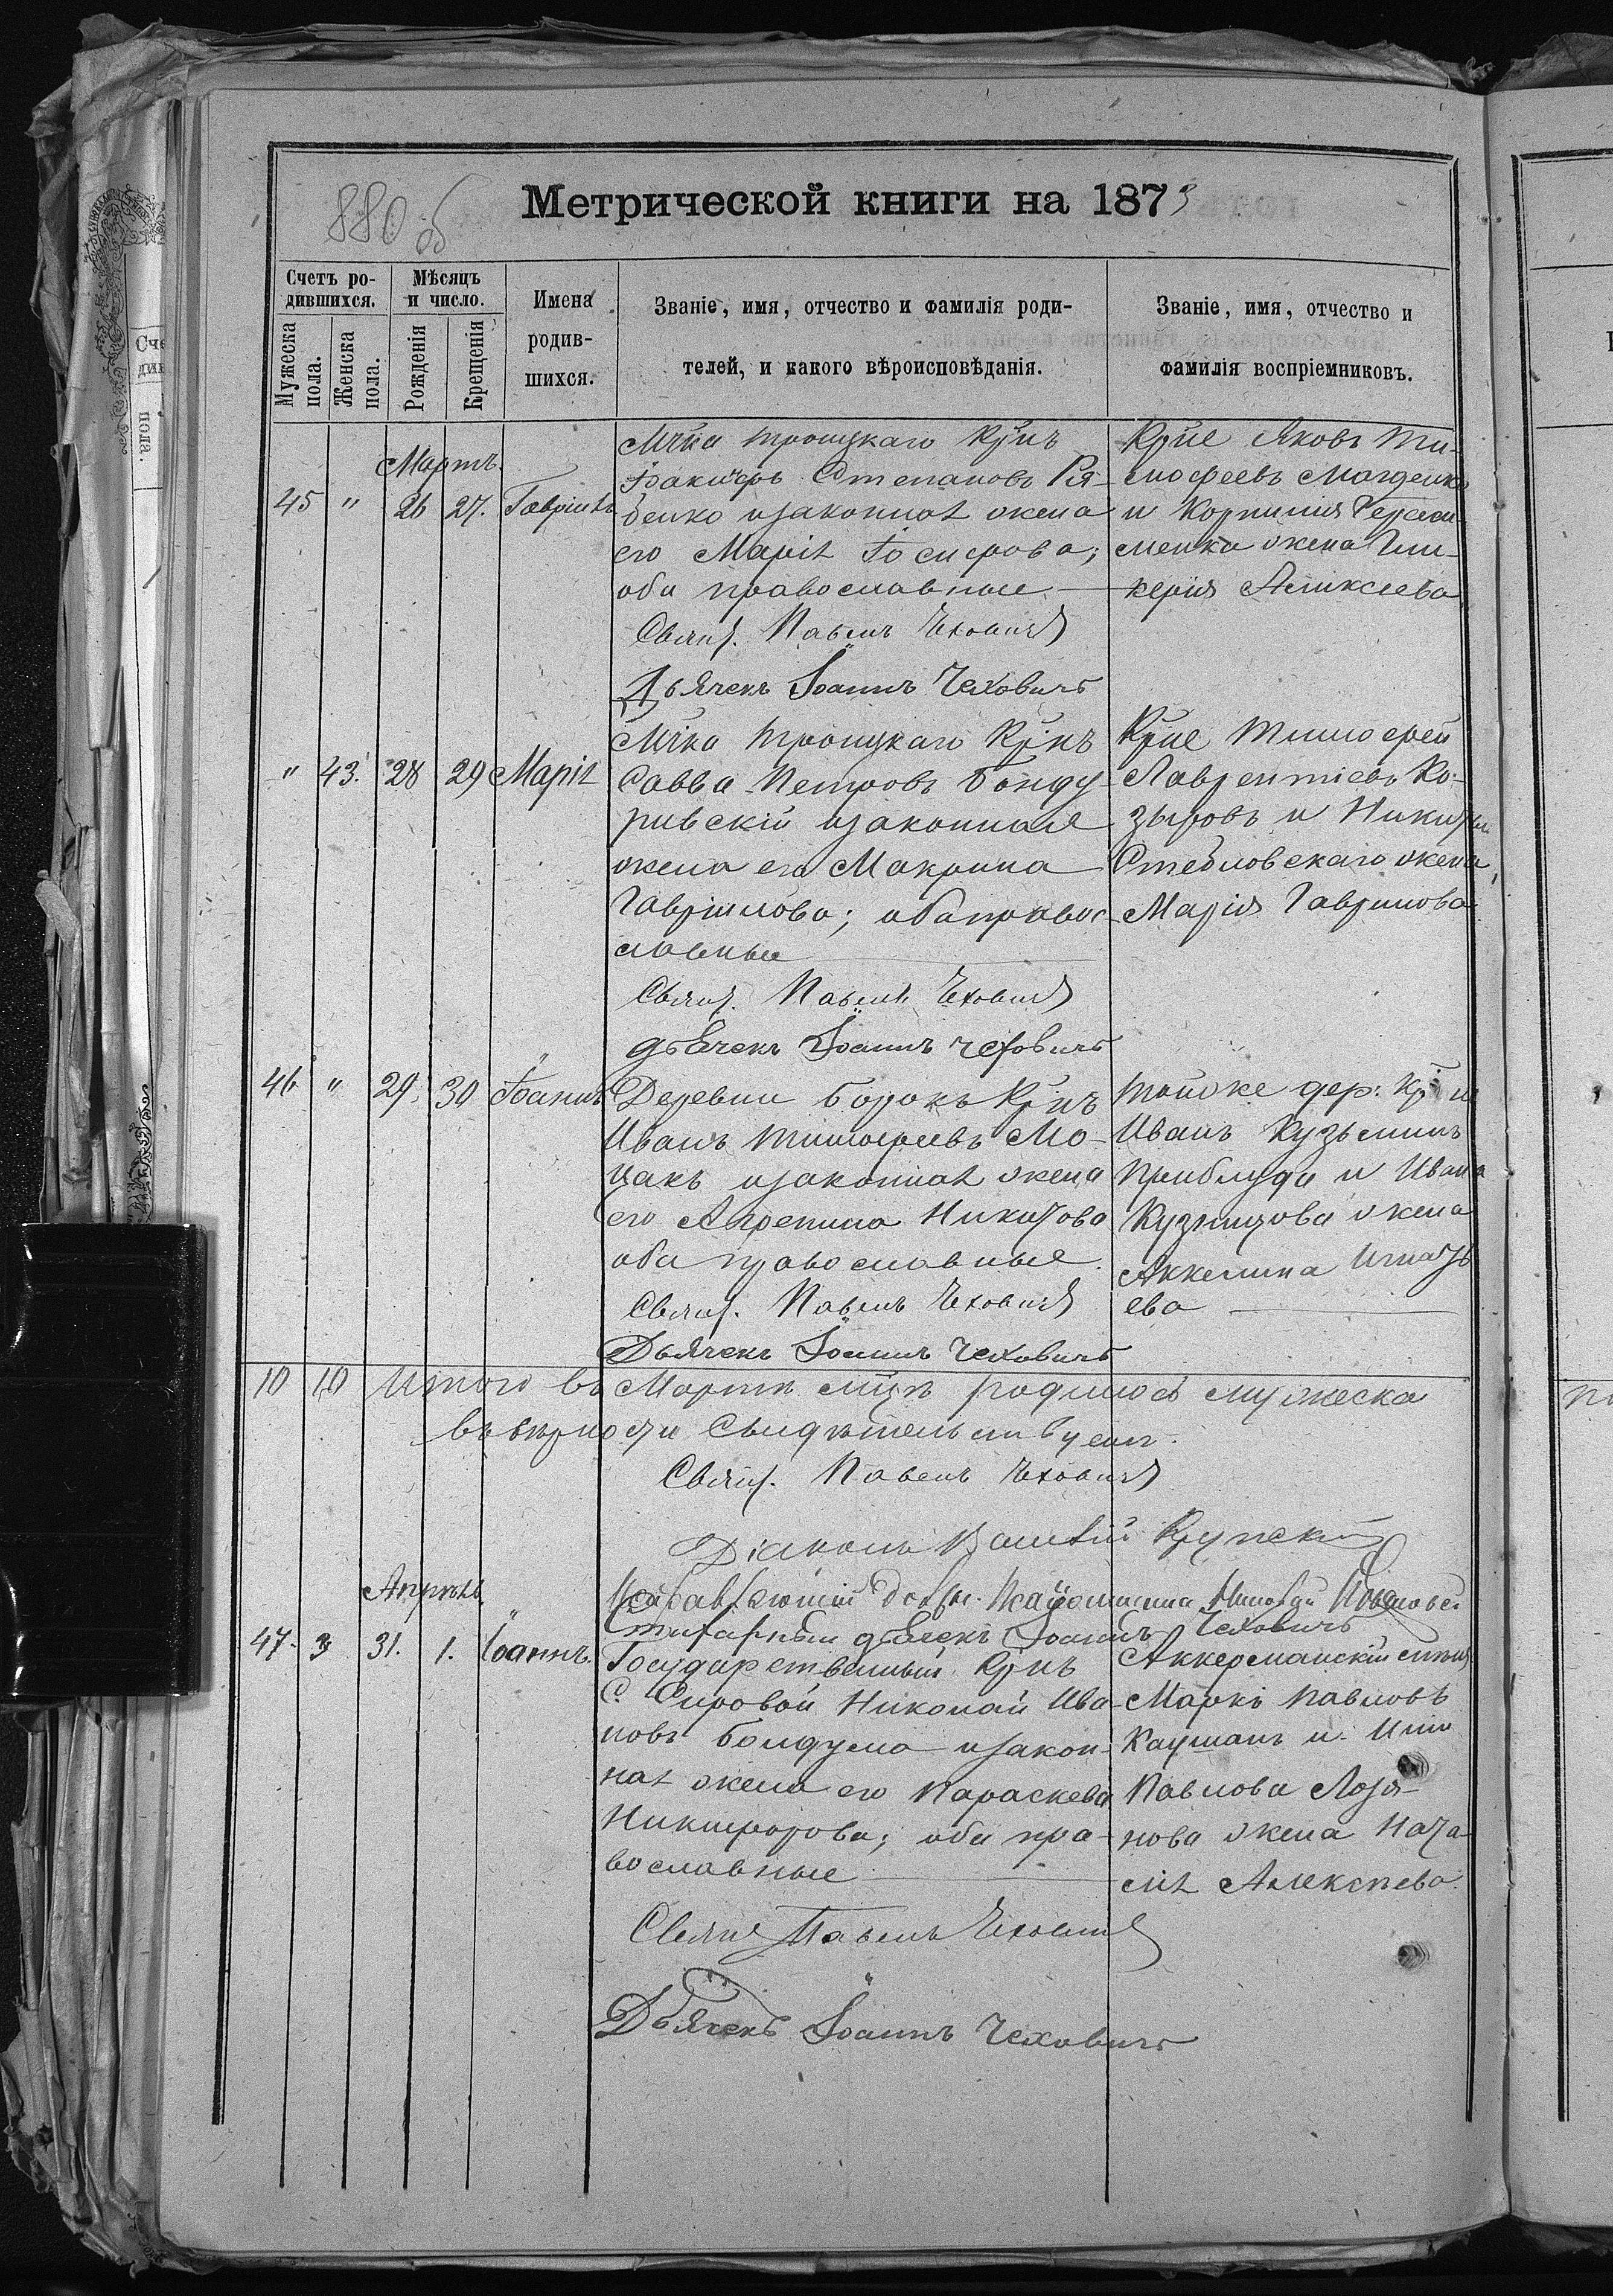 880 об
Метрической книги на 1873
Счетъ ро-
дившихся.
Мужеска
пола.
Женска
пола.
Мѣсяцъ
и число.
Рожденія
Крещенія
Имена
родив-
шихся.
Званіе, имя, отчество и фамилія роди-
телей, и какого вѣроисповѣданія.
Званіе, имя, отчество и
фамилія воспріемниковъ.
Мартъ
45 " 26 27. Гавріилъ
Троицкаго Крнъ
Степановъ Ря-
бенко изаконная жена
его Марія Іосифова;
оба православные
Свящ. Павелъ Чховичъ
Дьячекъ Іоаннъ Чеховичъ
Крне Яковъ Ти-
мофеевъ
и Корнилія Гераси-
менка жена Гли-
керія Аликсеева
" 43. 28 29 Марія
Троицкаго Крнъ
Савва Петровъ Бонду-
ривскій изаконная
жена его Макрина
Гавріилова; оба правос-
лавные
Свящ. Павелъ Чховичъ
дьячекъ Іоаннъ Чеховичъ
Крне Тимофей
Лаврентіевъ Ко-
зыровъ и Никиты
Стебловскаго жена
Марія Гаврилова
46 " 29 30 Іоаннъ
Деревни Борокъ Крнъ
Иванъ Тимофеевъ Мо-
цакъ изаконная жена
его Агрепина Никитова
оба православные.
Свящ. Павелъ Чховичъ
Дьячекъ Іоаннъ Чеховичъ
Тойже дер: Крне
Иванъ Кузьминъ
Приблуда и Ивана
Кузницова жена
Аккелина Игнать
ева
10 10 Итого въ Мартѣ мцѣ родилось мужеска
вѣрности свидѣтельствуемъ.
Свящ. Павелъ Чховичъ
Діаконъ Крупскій
Чеховичъ
Апрѣль
47. 3 31. 1. Іоаннъ.
Государственный Крнъ
С. Николай Ива-
новъ изакон-
ная жена его Параскева
Никифорова; оба пра-
вославные
Павелъ Чховичъ
Дьячекъ Іоаннъ Чеховичъ
Аккерманскій
Марко Павловъ
Каушанъ и
Павлова Лозя-
нова жена Ната-
лія Алексѣева.